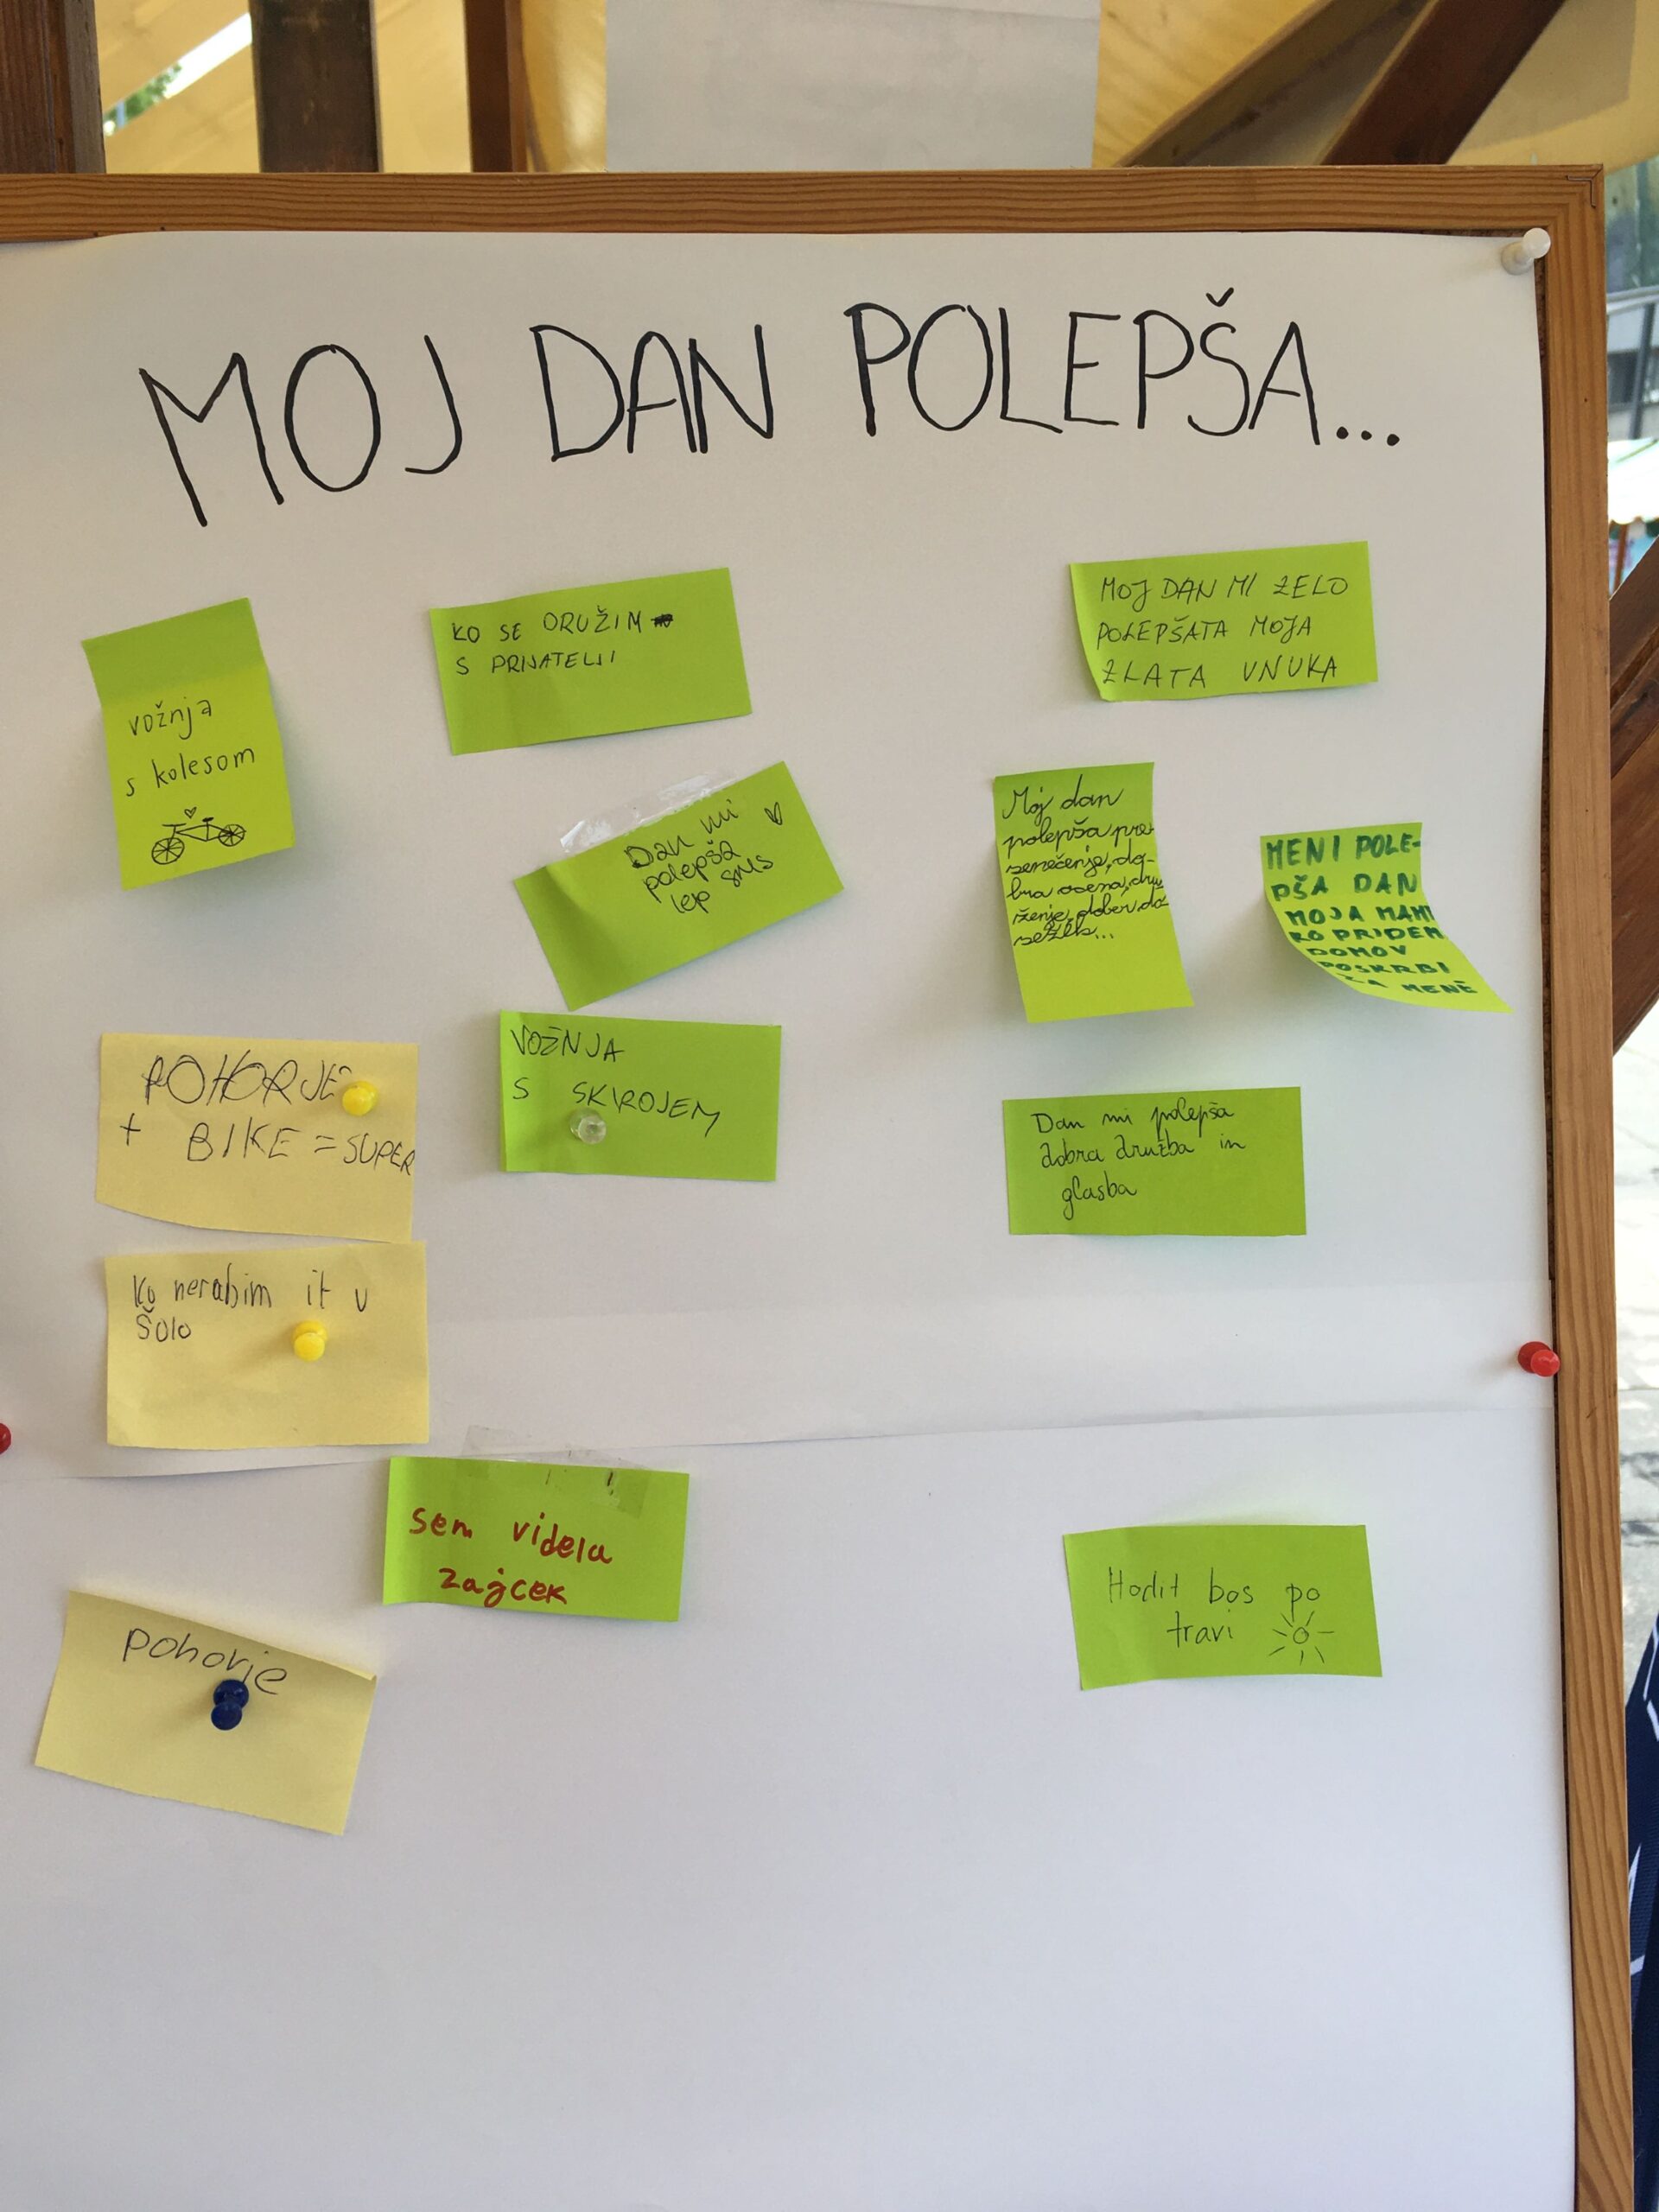 MOJ DAN POLEPŠA...
vožnja
s kolesom
KO SE DRUŽIM
S PRIJATELJI
MOJ DAN MI ZELO
POLEPŠATA MOJA
ZLATA VNUKA
Dan mi
polepša
lep sms
Moj dan
polepša pre-
senečenje, do-
bra ocena, dru-
ženje, dober do-
sežek...
MENI POLE-
PŠA DAN
MOJA MAMI
KO PRIDEM
DOMOV
POSKRBI
ZA MENE
POHORJE
+ BIKE = SUPER
VOŽNJA
S SKIROJEM
Dan mi polepša
dobra družba in
glasba
Ko nerabim it v
Šolo
sem videla
zajcek
Hodit bos po
travi
pohorje